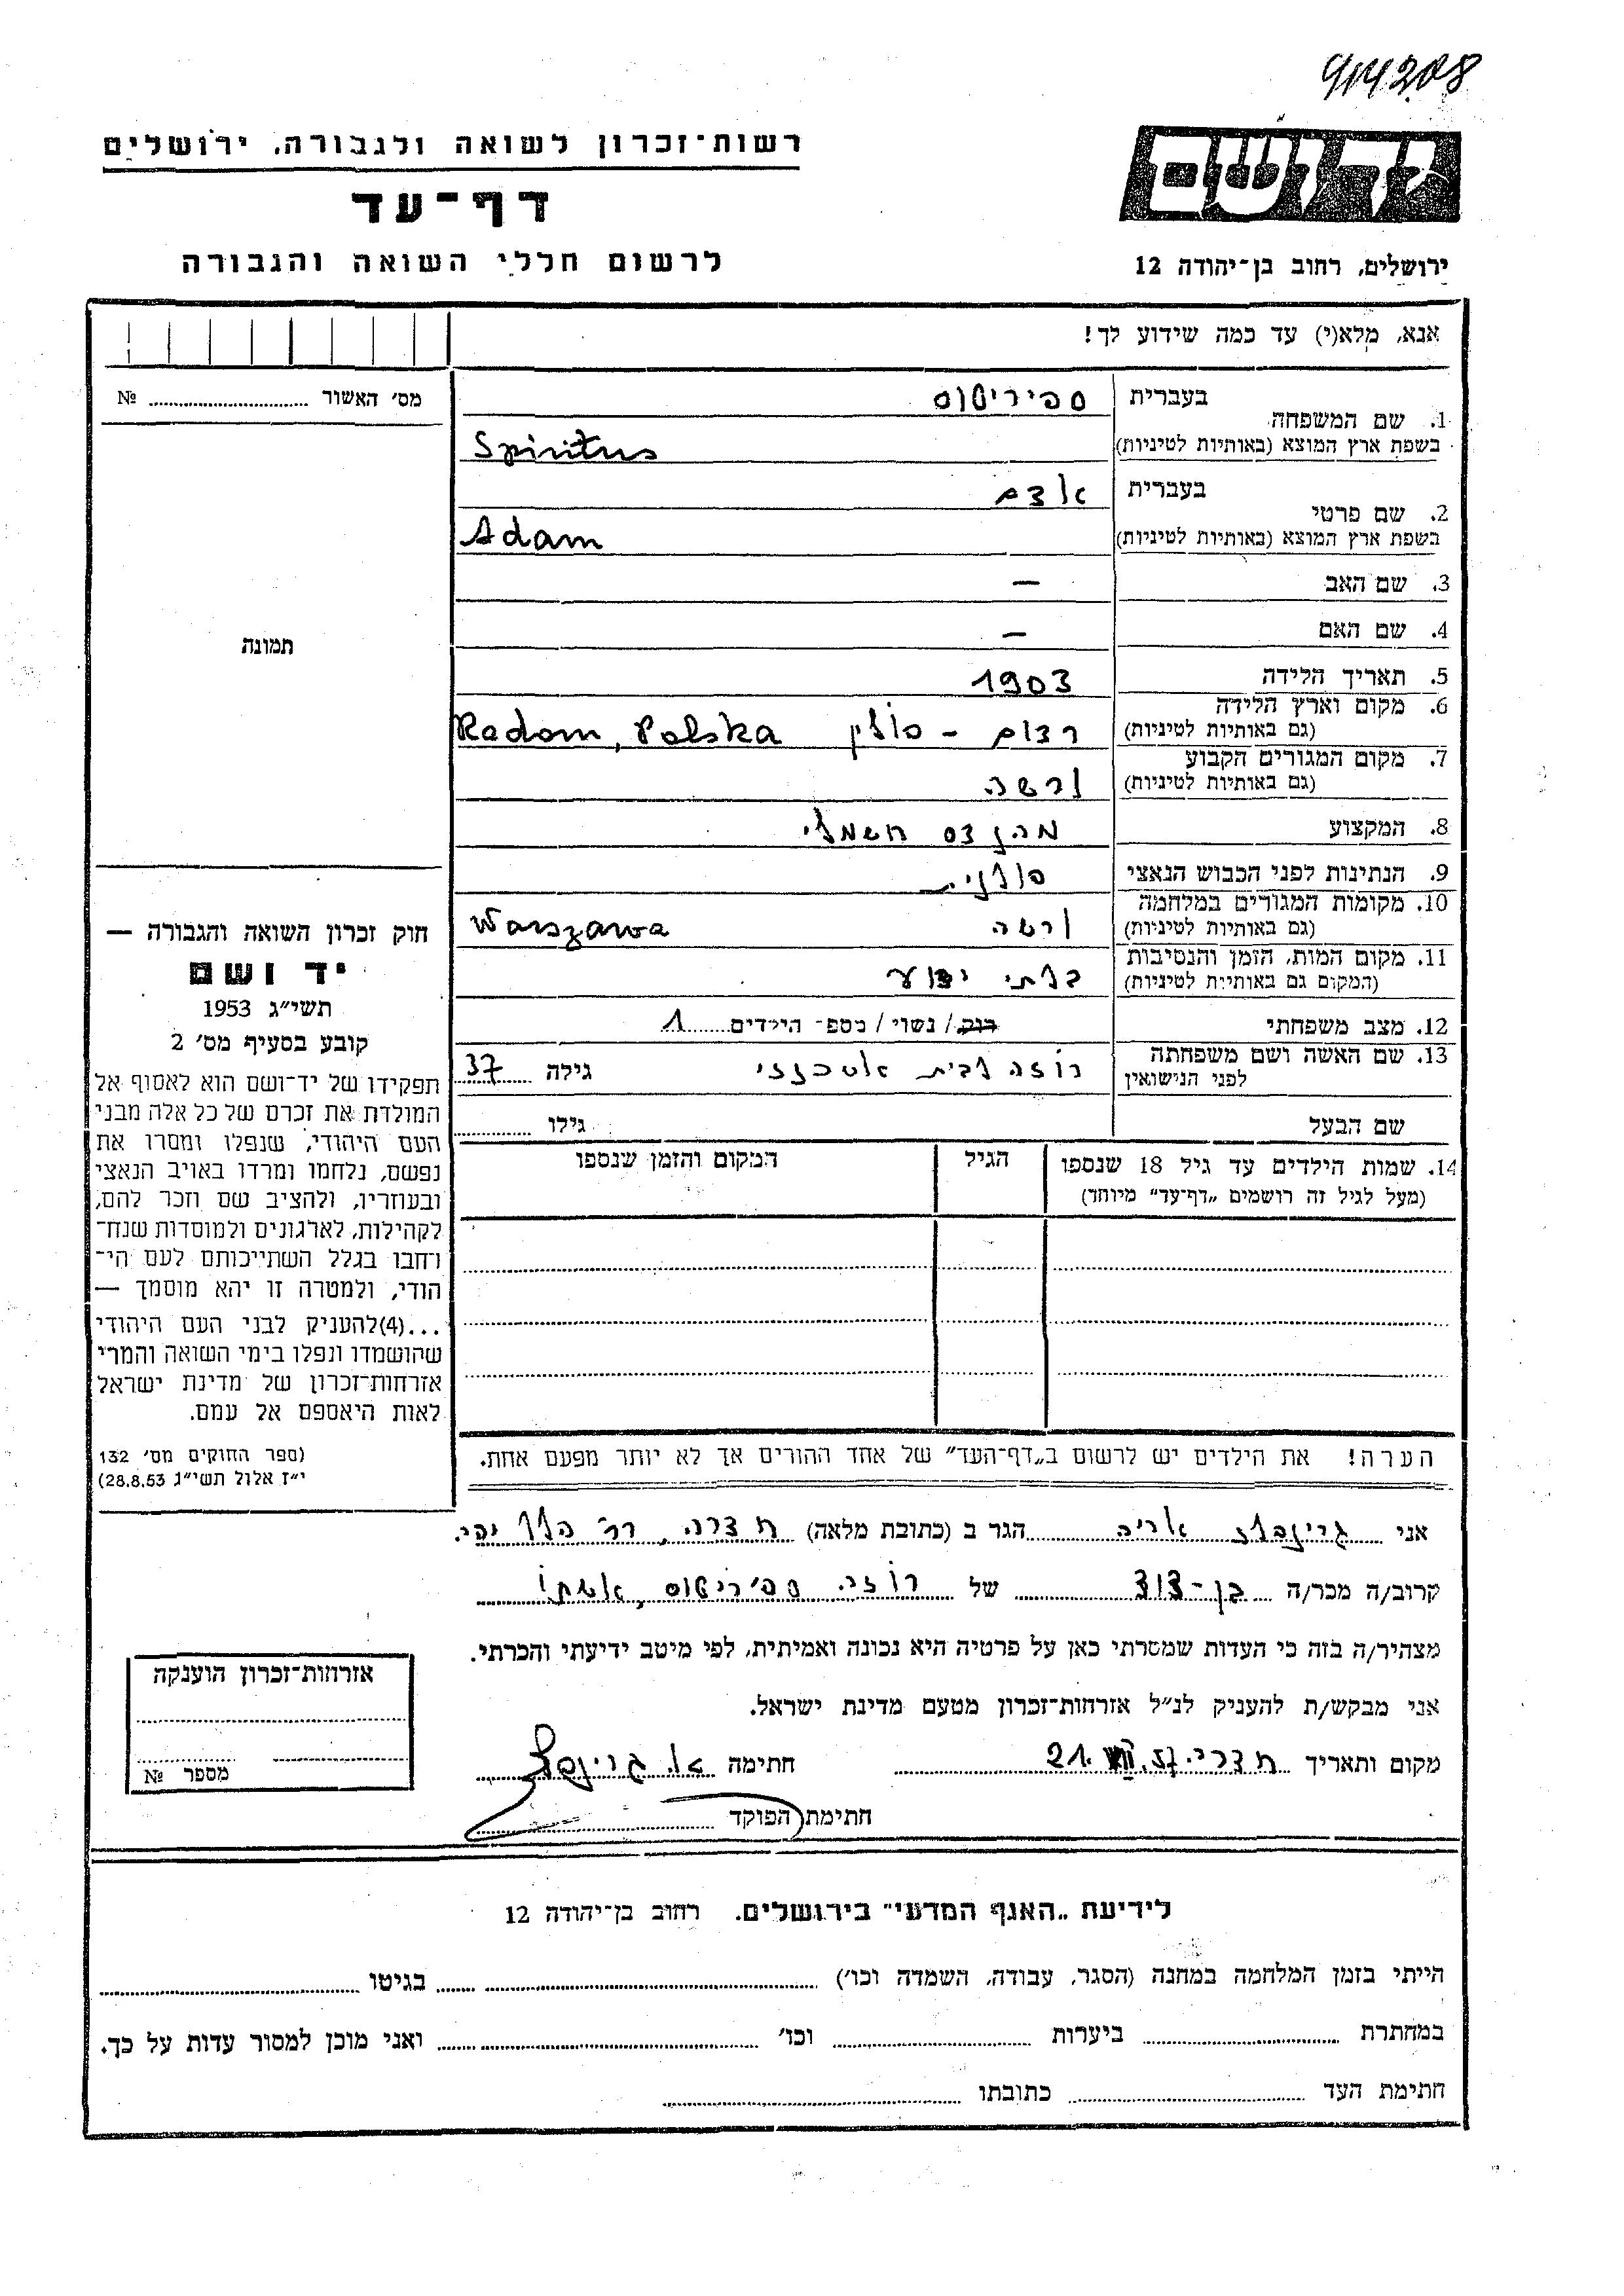 914208
רשות־זכרון לשואה ולגבורה, ירושלים
דף־עד
לרשום חללי השואה והגבורה
יד ושם
ירושלים, רחוב בן־יהודה 12
אנא, מלא(י) עד כמה שידוע לך!
מס׳ האשור ........ №
תמונה
1. שם המשפחה בעברית ספיריטוס
בשפת ארץ המוצא (באותיות לטיניות) Spiritus
2. שם פרטי בעברית אדם
בשפת ארץ המוצא (באותיות לטיניות) Adam
3. שם האב —
4. שם האם —
5. תאריך הלידה 1903
6. מקום וארץ הלידה
(גם באותיות לטיניות) רדום - פולין Radom, Polska
7. מקום המגורים הקבוע
(גם באותיות לטיניות) ורשה
8. המקצוע חשמלי
9. הנתינות לפני הכבוש הנאצי פולנית
10. מקומות המגורים במלחמה
(גם באותיות לטיניות) ורשה Warszawa
11. מקום המות, הזמן והנסיבות
(המקום גם באותיות לטיניות) בלתי ידוע
12. מצב משפחתי רוק/ נשוי/ מספ־ הילדים 1
13. שם האשה ושם משפחתה
לפני הנישואין רוזה לבית אשכנזי גילה 37
שם הבעל גילו ........
14. שמות הילדים עד גיל 18 שנספו הגיל המקום והזמן שנספו
(מעל לגיל זה רושמים „דף־עד״ מיוחד)
הערה! את הילדים יש לרשום ב„דף־העד״ של אחד ההורים אך לא יותר מפעם אחת.
חוק זכרון השואה והגבורה —
יד ושם
תשי״ג 1953
קובע בסעיף מס׳ 2
תפקידו של יד־ושם הוא לאסוף אל
המולדת את זכרם של כל אלה מבני
העם היהודי, שנפלו ומסרו את
נפשם, נלחמו ומרדו באויב הנאצי
ובעוזריו, ולהציב שם וזכר להם,
לקהילות, לארגונים ולמוסדות שנח־
רחבו בגלל השתייכותם לעם הי־
הודי, ולמטרה זו יהא מוסמך —
...(4)להעניק לבני העם היהודי
שהושמדו ונפלו בימי השואה והמרי
אזרחות־זכרון של מדינת ישראל
לאות היאספם אל עמם.
(ספר החוקים מס׳ 132
י״ז אלול תשי״ג 28.8.53)
אני גרינבלט אריה הגר ב (כתובת מלאה) חדרה, רח׳ הלל יפה
קרוב/ה מכר/ה בן-דוד של רוזה ספיריטוס, אשתו
מצהיר/ה בזה כי העדות שמסרתי כאן על פרטיה היא נכונה ואמיתית, לפי מיטב ידיעתי והכרתי.
אני מבקש/ת להעניק לנ״ל אזרחות־זכרון מטעם מדינת ישראל.
מקום ותאריך חדרה 21. VII. 57 חתימה א. גרינבלט
חתימת הפוקד
אזרחות־זכרון הוענקה
מספר №
לידיעת „האגף המדעי״ בירושלים. רחוב בן־יהודה 12
הייתי בזמן המלחמה במחנה (הסגר, עבודה, השמדה וכו׳) ........ בגיטו ........
במחתרת ........ ביערות ........ וכו׳ ........ ואני מוכן למסור עדות על כך.
חתימת העד ........ כתובתו ........